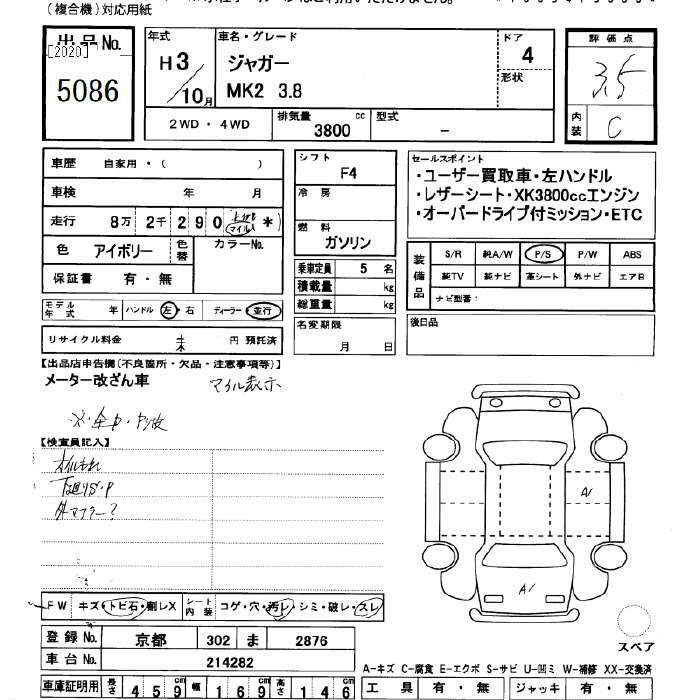 (複合機)対応用紙
出品No.
[2020]
5086
年式
H3/10月
車名・グレード
ジャガー
MK2 3.8
ドア
4
形状
評価点
3.5
内装
C
2WD・4WD
排気量
3800 cc
型式
-
車歴 自家用・( )
車検 年 月
走行 8万2千290 *)
マイル
色 アイボリー 色替 カラーNo.
保証書 有・無
シフト
F4
冷房
燃料
ガソリン
乗車定員 5 名
積載量 kg
総重量 kg
セールスポイント
・ユーザー買取車・左ハンドル
・レザーシート・XK3800ccエンジン
・オーバードライブ付ミッション・ETC
装備品
S/R 純A/W P/S P/W ABS
純TV 純ナビ 革シート 外ナビ エアB
ナビ型番:
モデル年式 年 ハンドル 左・右 ディーラー・並行
リサイクル料金 円 預託済
名変期限
月 日
後日品
【出品店申告欄(不良箇所・欠品・注意事項等)】
メーター改ざん車 マイル表示
【検査員記入】
オイルもれ
下廻りS・P
外マフラー?
A1
A1
FW キズ・トビ石・割レX シート内装 コゲ・穴・汚レ・シミ・破レ・スレ
スペア
登録No. 京都 302 ま 2876
車台No. 214282
A-キズ C-腐食 E-エクボ S-サビ U-凹ミ W-補修 XX-交換済
車庫証明用 長さ 459cm 幅 169cm 高さ 146cm
工具 有・無 ジャッキ 有・無